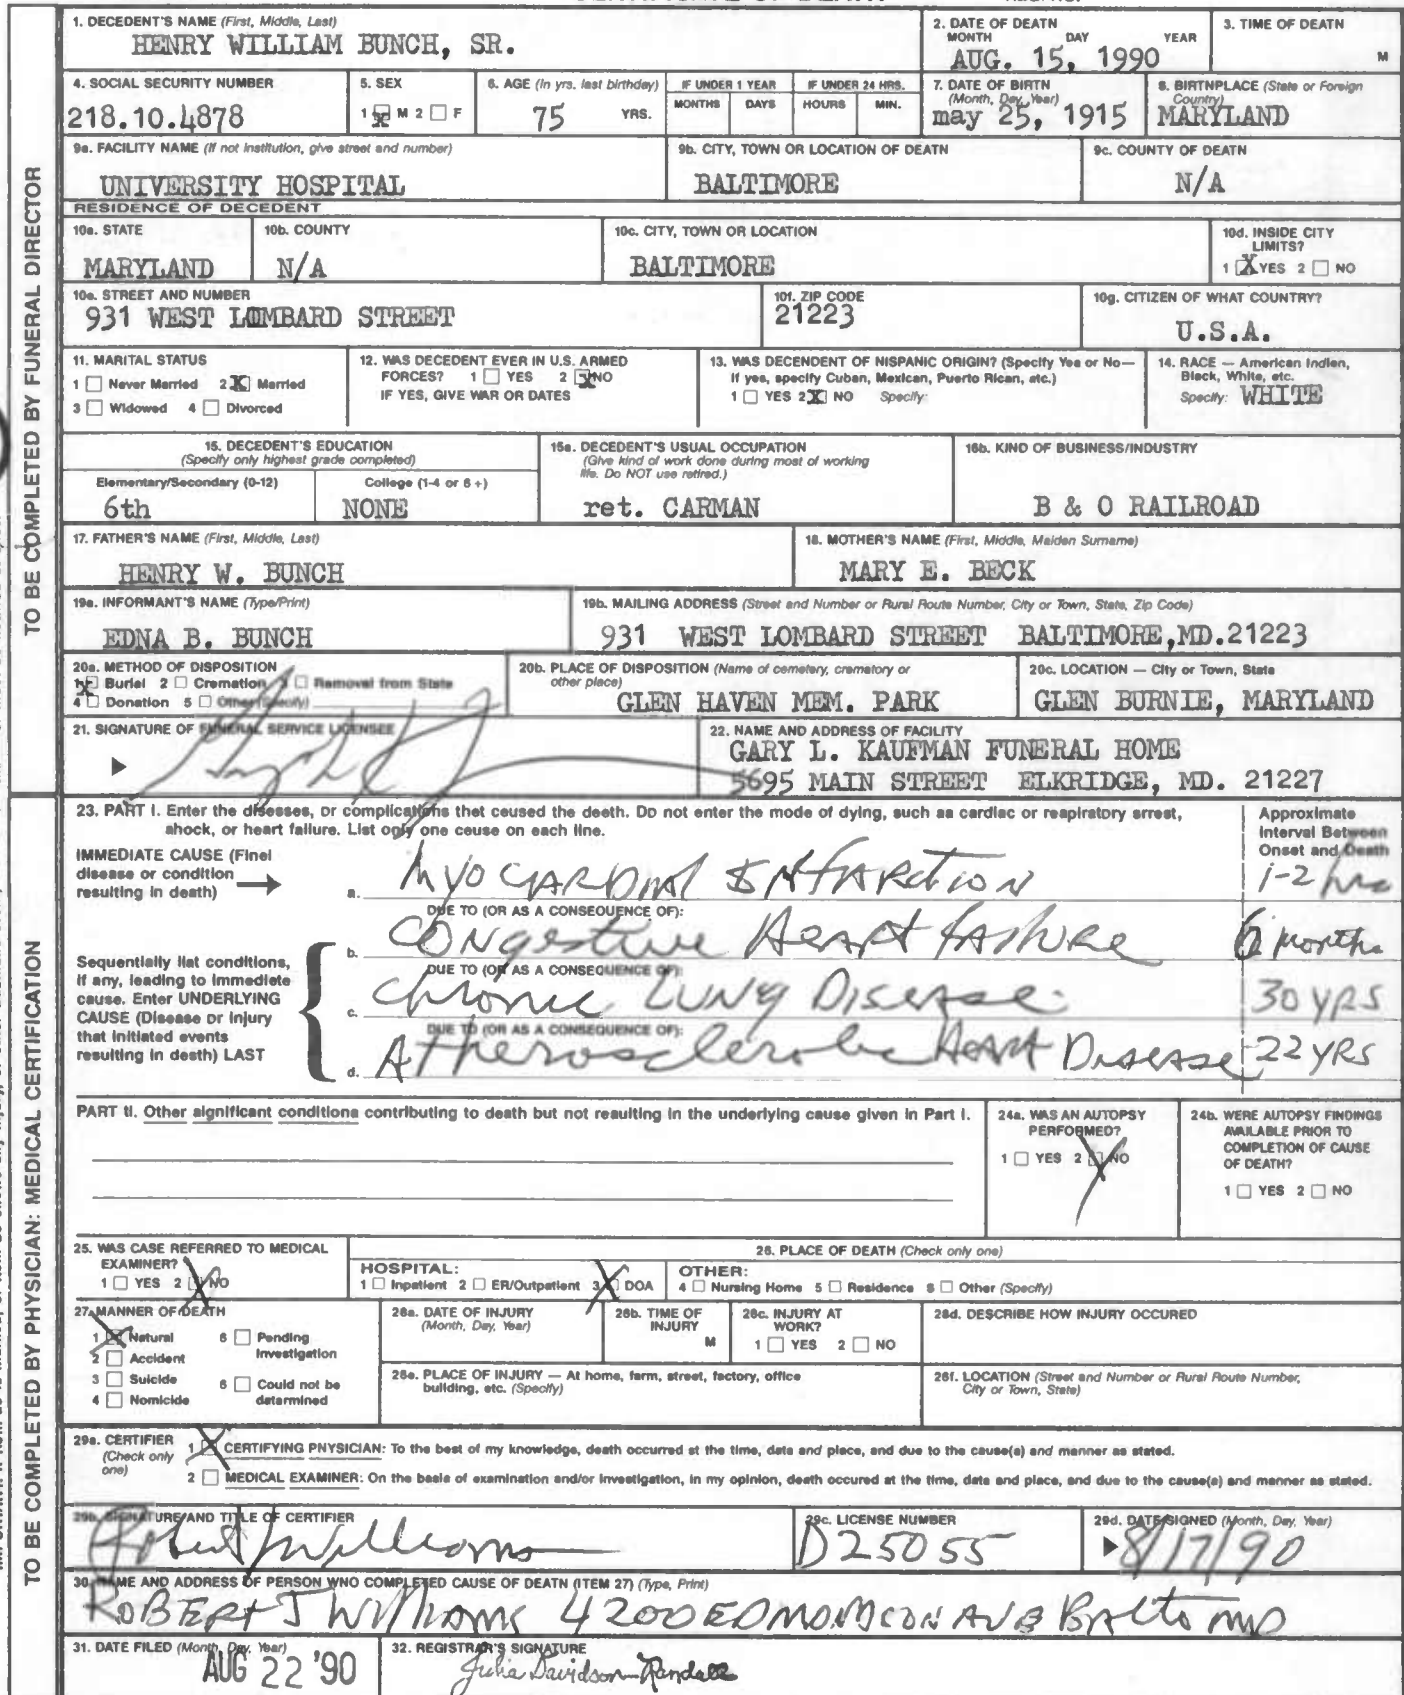 1. DECEDENT'S NAME (First, Middle, Last)
HENRY WILLIAM BUNCH, SR.
2. DATE OF DEATN
MONTH DAY YEAR
AUG. 15, 1990
3. TIME OF DEATN
M
4. SOCIAL SECURITY NUMBER
218.10.4878
5. SEX
1 X M 2 ☐ F
6. AGE (In yrs. last birthday)
75 YRS.
IF UNDER 1 YEAR
MONTHS DAYS
IF UNDER 24 HRS.
HOURS MIN.
7. DATE OF BIRTN
(Month, Day, Year)
may 25, 1915
8. BIRTNPLACE (State or Foreign
Country)
MARYLAND
9a. FACILITY NAME (If not institution, give street and number)
UNIVERSITY HOSPITAL
9b. CITY, TOWN OR LOCATION OF DEATH
BALTIMORE
9c. COUNTY OF DEATN
N/A
RESIDENCE OF DECEDENT
10a. STATE
MARYLAND
10b. COUNTY
N/A
10c. CITY, TOWN OR LOCATION
BALTIMORE
10d. INSIDE CITY
LIMITS?
1 X YES 2 ☐ NO
10e. STREET AND NUMBER
931 WEST LOMBARD STREET
10f. ZIP CODE
21223
10g. CITIZEN OF WHAT COUNTRY?
U.S.A.
11. MARITAL STATUS
1 ☐ Never Married 2 X Married
3 ☐ Widowed 4 ☐ Divorced
12. WAS DECEDENT EVER IN U.S. ARMED
FORCES? 1 ☐ YES 2 X NO
IF YES, GIVE WAR OR DATES
13. WAS DECENDENT OF NISPANIC ORIGIN? (Specify Yes or No—
If yes, specify Cuban, Mexican, Puerto Rican, etc.)
1 ☐ YES 2 X NO Specify:
14. RACE — American Indien,
Bleck, White, etc.
Specify: WHITE
15. DECEDENT'S EDUCATION
(Specify only highest grade completed)
Elementary/Secondary (0-12) College (1-4 or 6 +)
6th NONE
15a. DECEDENT'S USUAL OCCUPATION
(Give kind of work done during most of working
life. Do NOT use retired.)
ret. CARMAN
16b. KIND OF BUSINESS/INDUSTRY
B & O RAILROAD
17. FATHER'S NAME (First, Middle, Last)
HENRY W. BUNCH
18. MOTHER'S NAME (First, Middle, Maiden Surname)
MARY E. BECK
19a. INFORMANT'S NAME (Type/Print)
EDNA B. BUNCH
19b. MAILING ADDRESS (Street and Number or Rural Route Number, City or Town, State, Zip Code)
931 WEST LOMBARD STREET BALTIMORE,MD.21223
20a. METHOD OF DISPOSITION
1 X Buriel 2 ☐ Cremation 3 ☐ Removal from State
4 ☐ Donation 5 ☐ Other (Specify)
20b. PLACE OF DISPOSITION (Name of cemetery, crematory or
other place)
GLEN HAVEN MEM. PARK
20c. LOCATION — City or Town, State
GLEN BURNIE, MARYLAND
21. SIGNATURE OF FUNERAL SERVICE LICENSEE
22. NAME AND ADDRESS OF FACILITY
GARY L. KAUFMAN FUNERAL HOME
5695 MAIN STREET ELKRIDGE, MD. 21227
TO BE COMPLETED BY FUNERAL DIRECTOR
23. PART I. Enter the diseases, or complications thet ceused the deeth. Do not enter the mode of dying, such aa cardiac or reapiratory srrest,
ahock, or heart failure. List only one ceuse on each line.
Approximate
Interval Between
Onset and Death
IMMEDIATE CAUSE (Finel
disease or condition
resulting in death)
a. MYOCARDIAL INFARCTION 1-2 hrs
DUE TO (OR AS A CONSEOUENCE OF):
b. CONgestive HeARt FAIlURE 6 months
DUE TO (OR AS A CONSEQUENCE OF):
c. Chronic LUNg DiseAse 30 YRS
DUE TO (OR AS A CONSEQUENCE OF):
d. Atherosclerotic HeARt DiseAse 22 YRS
Sequentially llat conditions,
If any, leading to Immediete
cause. Enter UNDERLYING
CAUSE (Disease or Injury
that initiated events
resulting in death) LAST
PART II. Other algnificant conditiona contributing to death but not reaulting in the underlying cause given in Part I.
24a. WAS AN AUTOPSY
PERFORMED?
1 ☐ YES 2 X NO
24b. WERE AUTOPSY FINDINGS
AVAILABLE PRIOR TO
COMPLETION OF CAUSE
OF DEATH?
1 ☐ YES 2 ☐ NO
25. WAS CASE REFERRED TO MEDICAL
EXAMINER?
1 ☐ YES 2 X NO
26. PLACE OF DEATH (Check only one)
HOSPITAL:
1 ☐ Inpatient 2 ☐ ER/Outpatient 3 X DOA
OTHER:
4 ☐ Nursing Home 5 ☐ Residence 8 ☐ Other (Specify)
27. MANNER OF DEATH
1 X Natural 6 ☐ Pending
Investigation
2 ☐ Accident
3 ☐ Suicide 6 ☐ Could not be
4 ☐ Nomicide determined
28a. DATE OF INJURY
(Month, Day, Year)
26b. TIME OF
INJURY
M
28c. INJURY AT
WORK?
1 ☐ YES 2 ☐ NO
28d. DESCRIBE HOW INJURY OCCURED
26e. PLACE OF INJURY — At home, farm, street, factory, office
building, etc. (Specify)
26f. LOCATION (Street and Number or Rural Route Number,
City or Town, State)
29a. CERTIFIER
(Check only
one)
1 X CERTIFYING PNYSICIAN: To the best of my knowledge, death occurred st the time, data and place, and due to the cause(a) and manner as stated.
2 ☐ MEDICAL EXAMINER: On the basla of examination and/or Investigation, in my opinion, death occured at the time, date and place, and due to the cause(a) and manner as stated.
29b. SIGNATURE AND TITLE OF CERTIFIER
Robert J Williams
29c. LICENSE NUMBER
D25055
29d. DATE SIGNED (Month, Day, Year)
8/17/90
30. NAME AND ADDRESS OF PERSON WNO COMPLETED CAUSE OF DEATH (ITEM 27) (Type, Print)
ROBERT J WIlliAMS 4200 EDMONDSON AVE BAlto MD
31. DATE FILED (Month, Day, Year)
AUG 22 '90
32. REGISTRAR'S SIGNATURE
Julia Davidson-Randall
TO BE COMPLETED BY PHYSICIAN: MEDICAL CERTIFICATION